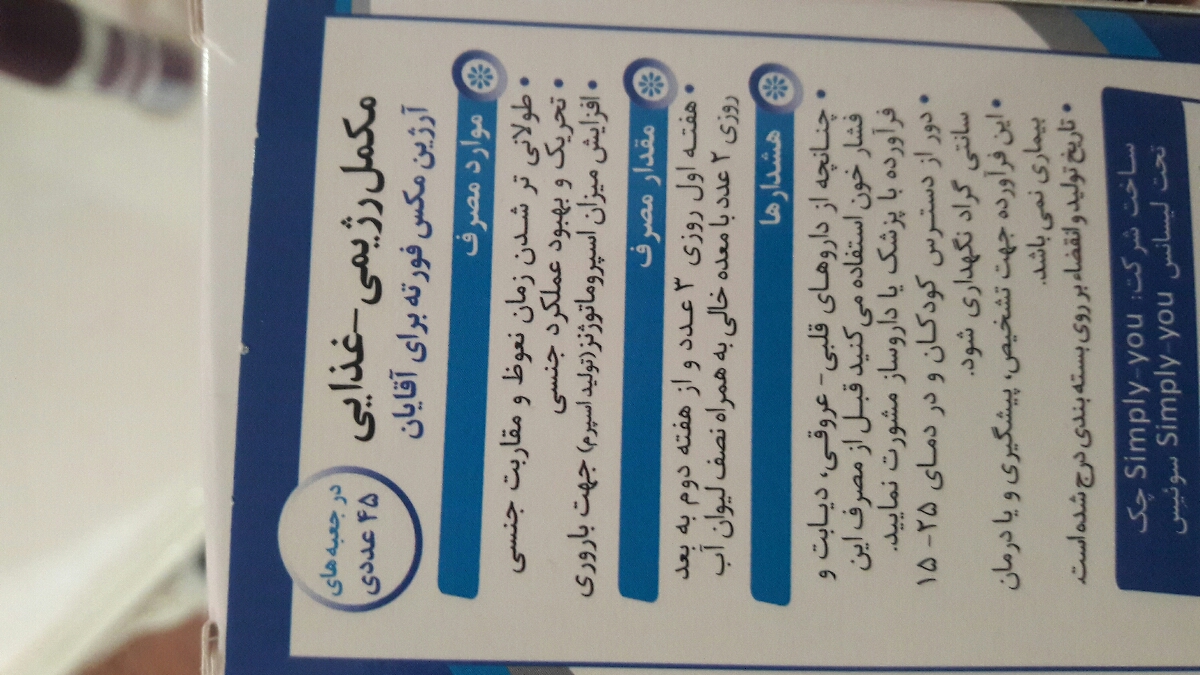 مکمل رژیمی-غذایی
آرژین مکس فورته برای آقایان
در جعبه های
۴۵ عددی
موارد مصرف
• طولانی تر شدن زمان نعوظ و مقاربت جنسی
• تحریک و بهبود عملکرد جنسی
• افزایش میزان اسپروماتوژنز(تولید اسپرم) جهت باروری
مقدار مصرف
• هفته اول روزی ۳ عدد و از هفته دوم به بعد
روزی ۲ عدد با معده خالی به همراه نصف لیوان آب
هشدارها
• چنانچه از داروهای قلبی - عروقی، دیابت و
فشار خون استفاده می کنید قبل از مصرف این
فرآورده با پزشک یا داروساز مشورت نمایید.
• دور از دسترس کودکان و در دمای ۲۵- ۱۵
سانتی گراد نگهداری شود.
• این فرآورده جهت تشخیص، پیشگیری و یا درمان
بیماری نمی باشد.
• تاریخ تولید و انقضاء بر روی بسته بندی درج شده است.
ساخت شرکت: Simply-you چک
تحت لیسانس Simply you سوئیس